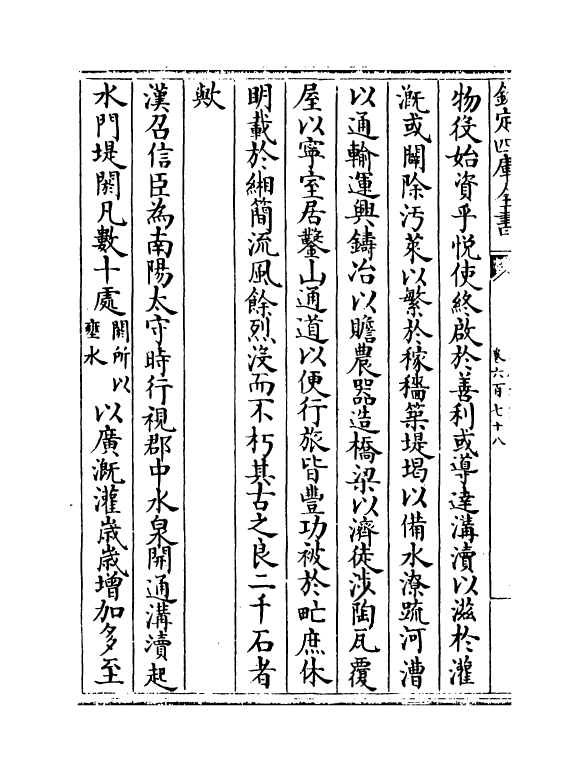 欽定四庫全書
卷六百七十八
物役始資乎悦使終啟於善利或導達溝瀆以滋於灌
溉或闢除汚萊以繁於稼穡築堤堨以備水潦疏河漕
以通輸運興鑄冶以贍農器造橋梁以濟徒涉陶瓦覆
屋以寧室居鑿山通道以便行旅皆豐功被於甿庶休
明載於緗簡流風餘烈沒而不朽其古之良二千石者
歟
漢召信臣為南陽太守時行視郡中水泉開通溝瀆起
水門堤閼凡數十處閼所以壅水以廣溉灌歳歳增加多至